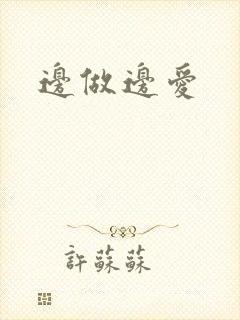 邊做邊愛
許蘇蘇